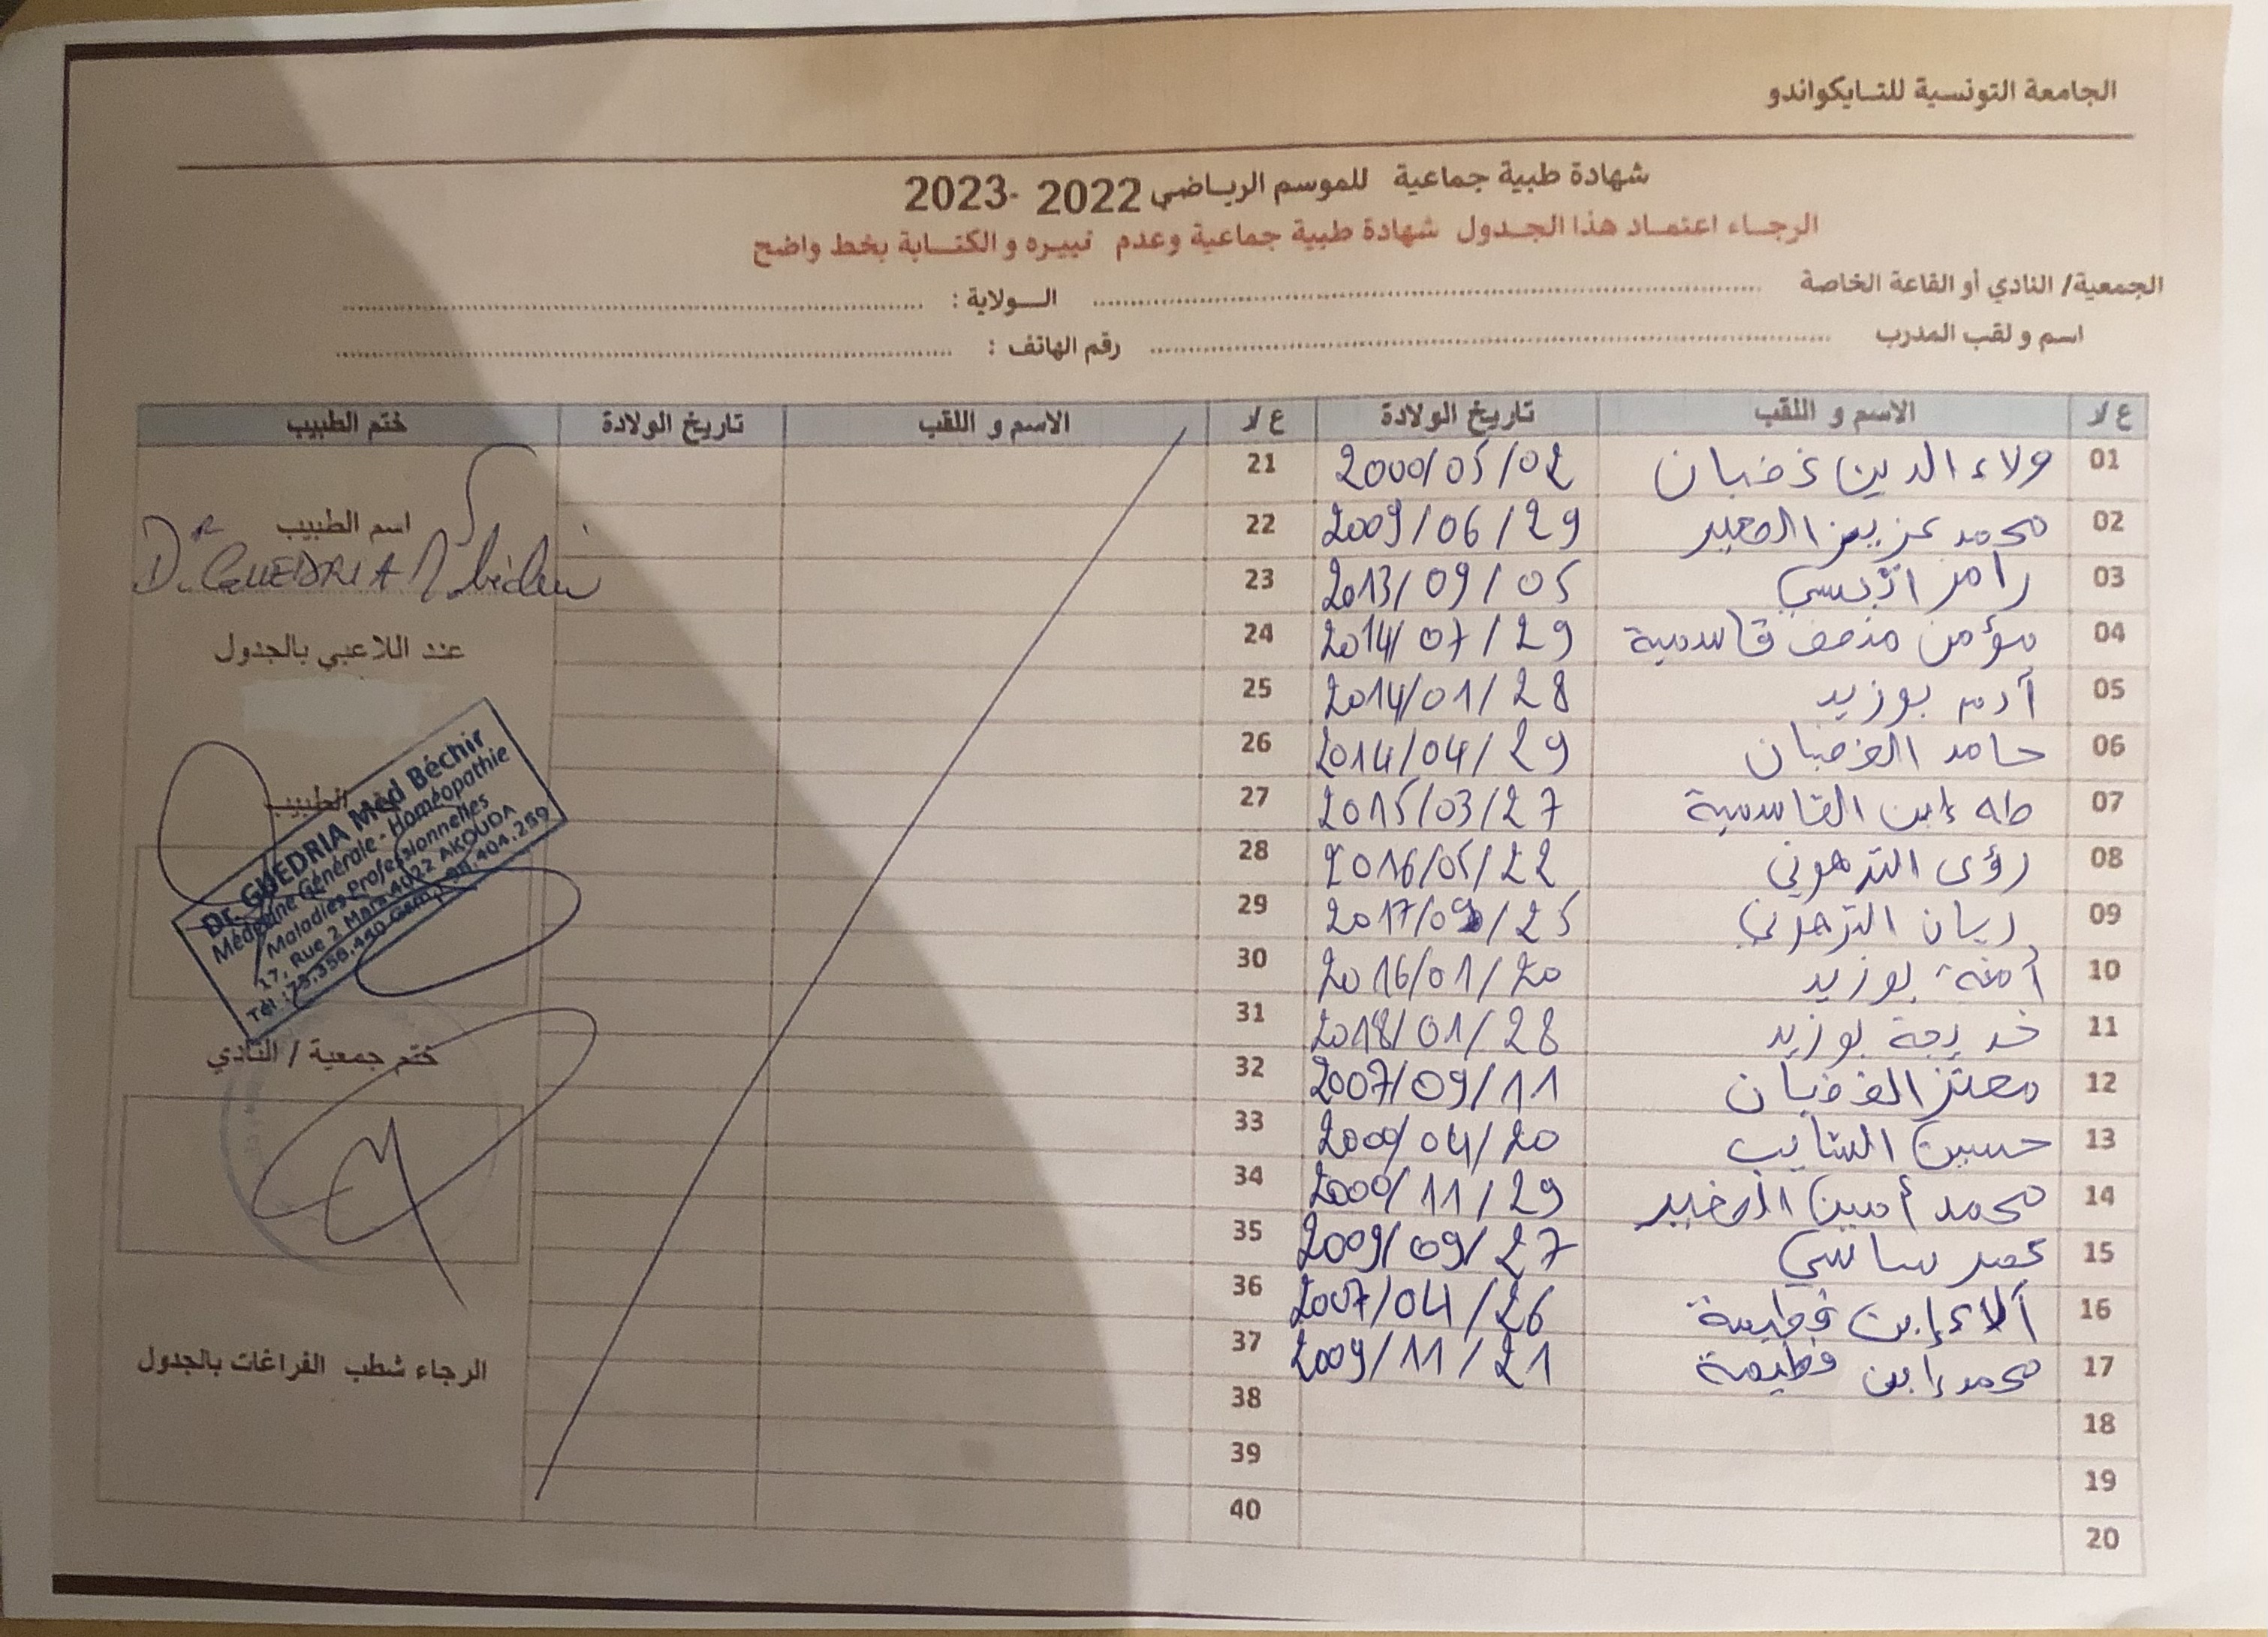 الجامعة التونسية للتايكواندو
شهادة طبية جماعية للموسم الرياضي 2022 -2023
الرجاء اعتماد هذا الجدول شهادة طبية جماعية وعدم تغييره و الكتابة بخط واضح
الجمعية/ النادي أو القاعة الخاصة ........ الولاية : ........
اسم و لقب المدرب ........ رقم الهاتف : ........
ع لا الاسم و اللقب تاريخ الولادة ع لا الاسم و اللقب تاريخ الولادة ختم الطبيب
01 ولاء الدين غضبان 2000/05/02 21
02 محمد عزيز 2009/06/29 22
03 رامز 2013/09/05 23
04 مؤمن منصف قاسمية 2014/07/29 24
05 آدم بوزيد 2014/01/28 25
06 حامد الغضبان 2014/04/29 26
07 طه إبن القاسمية 2015/03/27 27
08 رؤى الترهوني 2016/05/22 28
09 ريان الترهوني 2017/09/25 29
10 أمنة بوزيد 2016/01/20 30
11 خديجة بوزيد 2018/01/28 31
12 معتز الغضبان 2007/09/11 32
13 حسين الشايب 04/20 33
14 محمد أمين 2000/11/29 34
15 ساسي 2009/09/27 35
16 آلاء إبن فطيمة 2007/04/26 36
17 محمد إبن فطيمة 2009/11/21 37
18 38
19 39
20 40
اسم الطبيب
Dr GUEDRIA
عند اللاعبي بالجدول
الطبيب
Dr. GUEDRIA Med Béchir
Médecine Générale - Homéopathie
Maladies Professionnelles
17, Rue 2 Mars 4022 AKOUDA
Tél : 73.356.450 Gsm : 98.404.259
ختم جمعية / النادي
الرجاء شطب الفراغات بالجدول